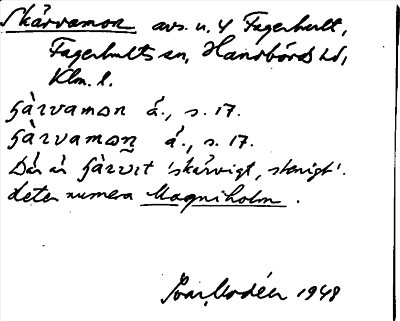 Skärvamon avs. u. 4 Fagerhult,
Fagerhults sn, Handbörds hd,
Klm. l.
ʃàrvamon á., s. 17.
ʃàrvamoṉ á., s. 17.
Där är ʃàrvıt 'skärvigt, stenigt'.
heter numera Magniholm.
Ivar Modéer 1948